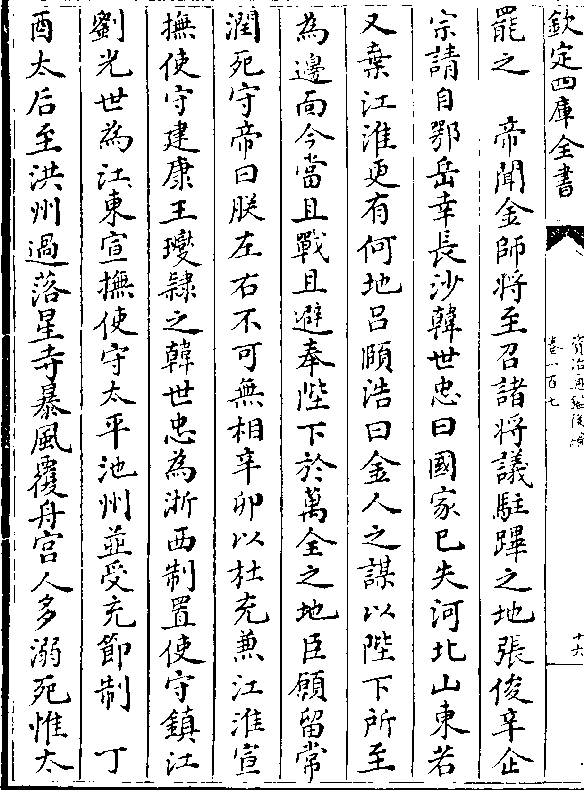 欽定四庫全書
資治通鑑後編
卷一百七
十六
罷之　帝聞金師將至召諸將議駐蹕之地張俊辛企
宗請自鄂岳幸長沙韓世忠曰國家已失河北山東若
又棄江淮更有何地吕頤浩曰金人之謀以陛下所至
為邊面今當且戰且避奉陛下於萬全之地臣願留常
潤死守帝曰朕左右不可無相辛卯以杜充兼江淮宣
撫使守建康王𤫉隸之韓世忠為浙西制置使守鎮江
劉光世為江東宣撫使守太平池州並受充節制　丁
酉太后至洪州過落星寺暴風覆舟宫人多溺死惟太